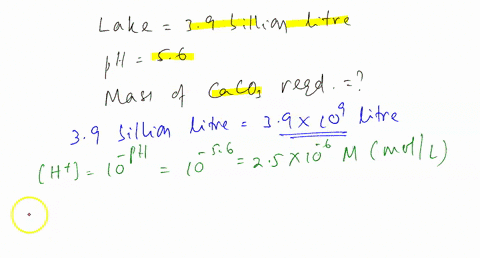 Lake = 3.9 billion litre
pH = 5.6
Mass of CaCO₃ reqd. = ?
3.9 billion litre = 3.9 × 10⁹ litre
[H⁺] = 10⁻ᵖᴴ = 10⁻⁵·⁶ = 2.5 × 10⁻⁶ M (mol/L)